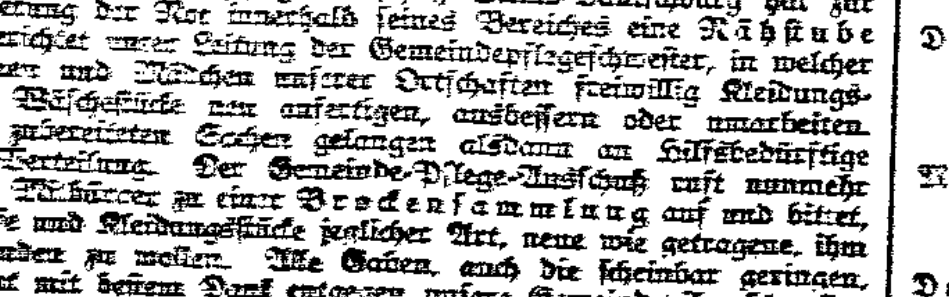 der Not innerhalb seines Bereiches eine Nähstube
unter Leitung der Gemeindepflegeschwester, in welcher
und Mädchen unserer Ortschaften freiwillig Kleidungs-
Wäschestücke neu anfertigen, ausbessern oder umarbeiten.
zubereiteten Sachen gelangen alsdann an Hilfsbedürftige
Verteilung. Der Gemeinde-Pflege-Ausschuß ruft nunmehr
Mitbürger zu einer Brockensammlung auf und bittet,
und Kleidungsstücke jeglicher Art, neue wie getragene, ihm
zu wollen. Alle Gaben, auch die scheinbar geringen,
mit bestem Dank entgegen unsere